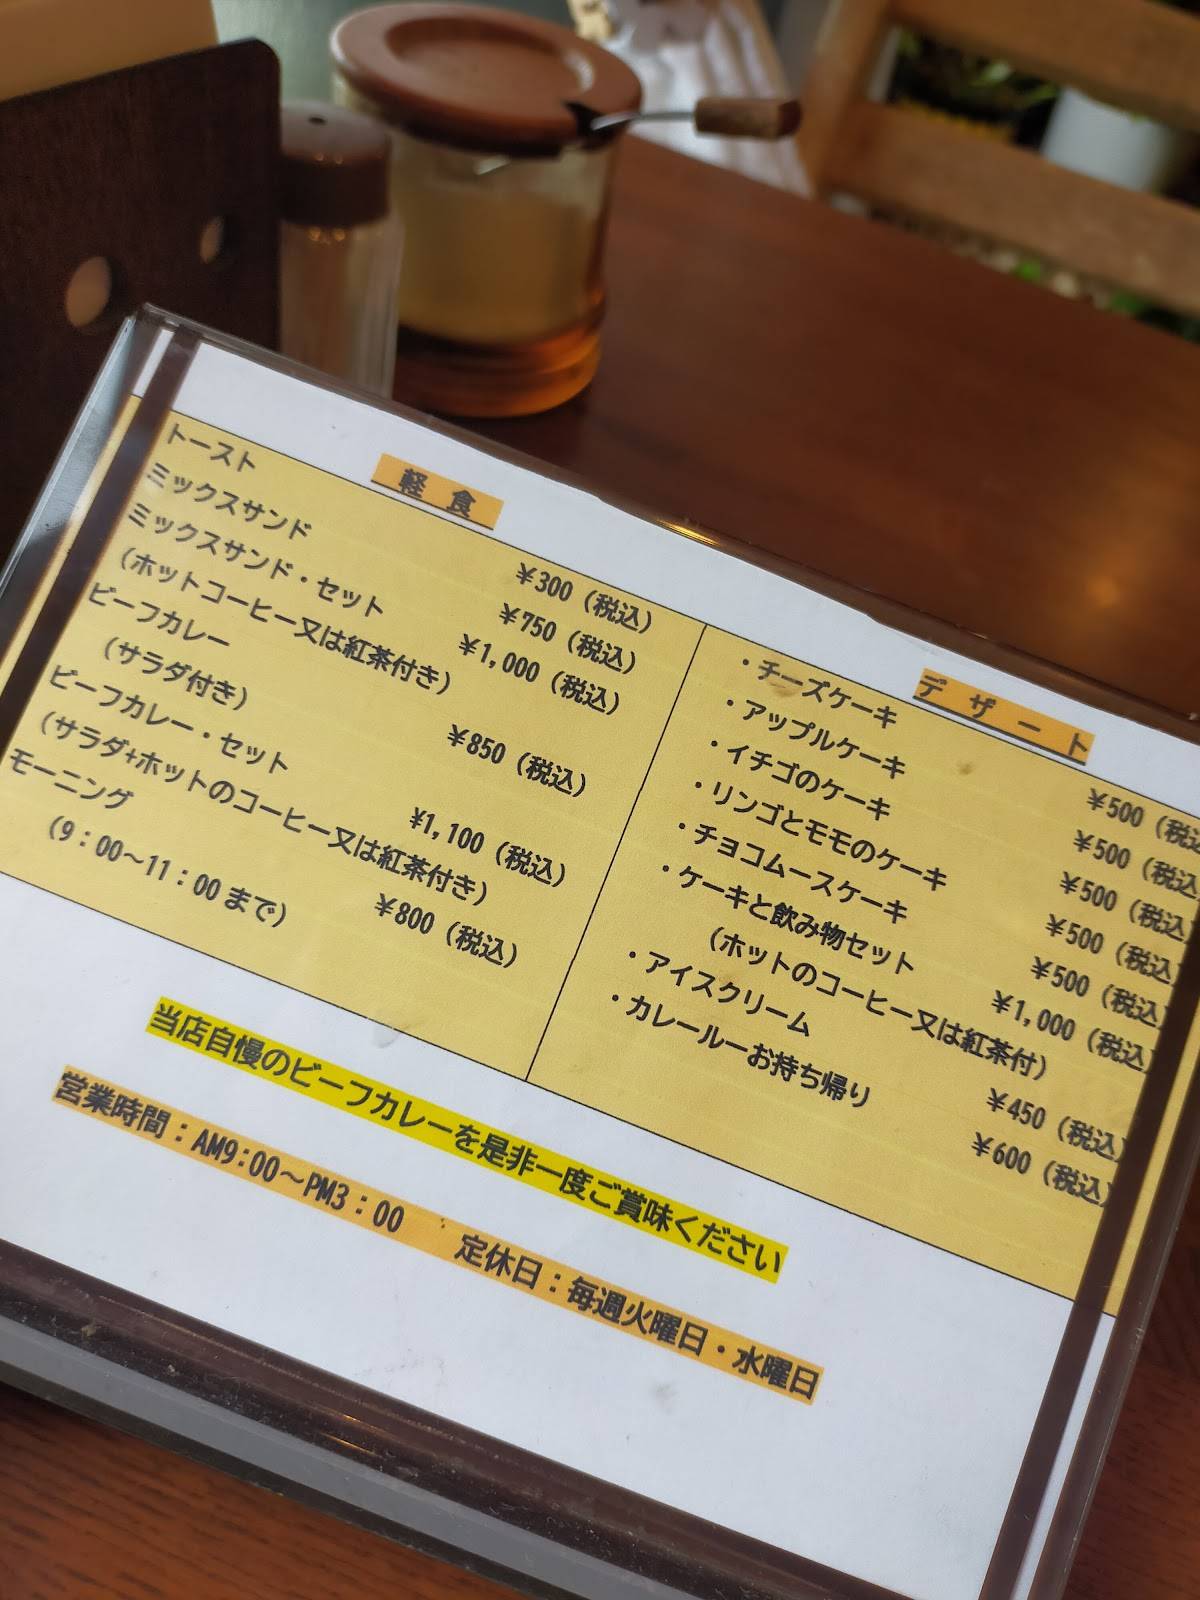 軽 食
トースト ¥300（税込）
ミックスサンド ¥750（税込）
ミックスサンド・セット ¥1,000（税込）
（ホットコーヒー又は紅茶付き）
ビーフカレー ¥850（税込）
（サラダ付き）
ビーフカレー・セット ¥1,100（税込）
（サラダ+ホットのコーヒー又は紅茶付き）
モーニング ¥800（税込）
（9：00～11：00まで）
デ ザ ー ト
・チーズケーキ ¥500（税込
・アップルケーキ ¥500（税込
・イチゴのケーキ ¥500（税込
・リンゴとモモのケーキ ¥500（税込
・チョコムースケーキ ¥500（税込）
・ケーキと飲み物セット ¥1,000（税込）
（ホットのコーヒー又は紅茶付）
・アイスクリーム ¥450（税込）
・カレールーお持ち帰り ¥600（税込）
当店自慢のビーフカレーを是非一度ご賞味ください
営業時間：AM9:00～PM3：00 定休日：毎週火曜日・水曜日